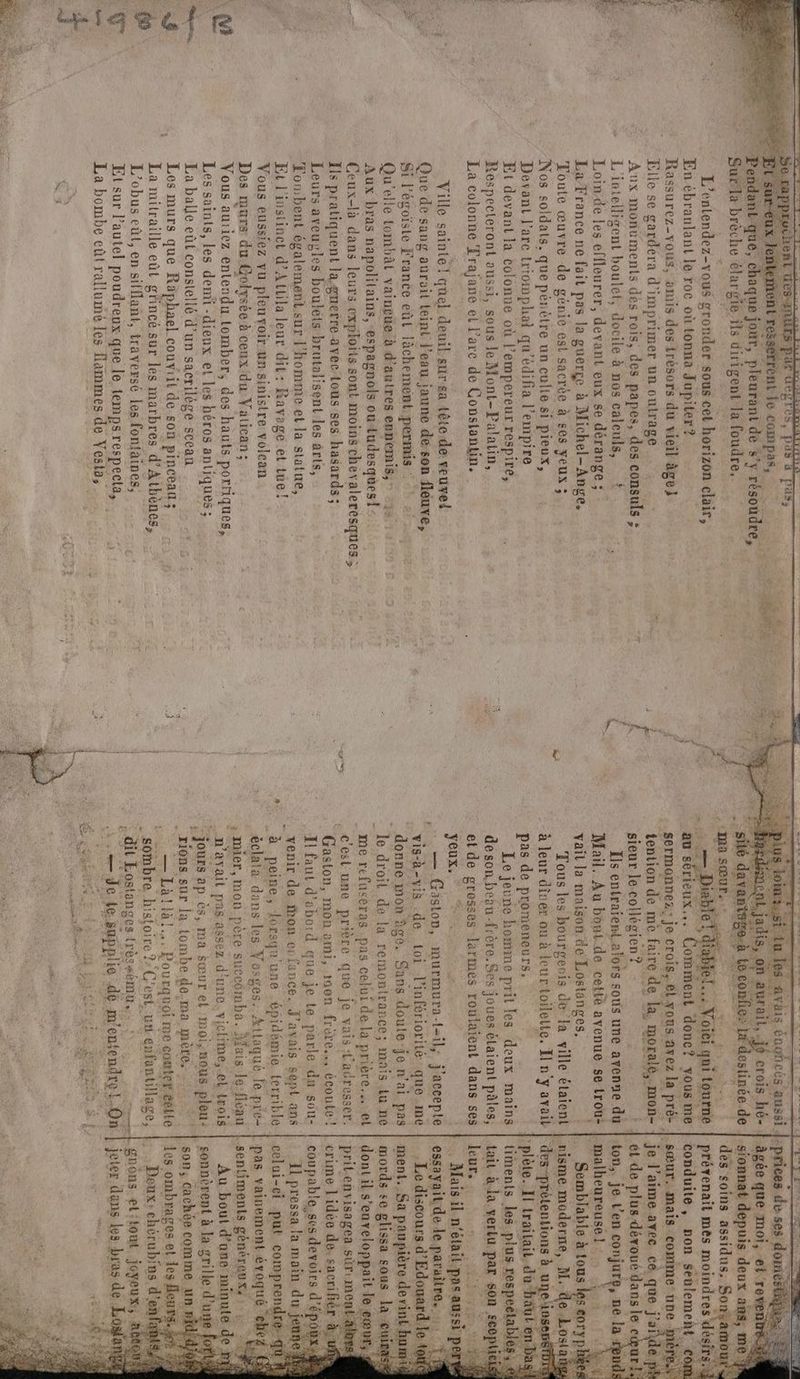 Se rapprochent des murs par degrés, pas à pas,
Et sur eux lentement resserrent le compas,
Pendant que, chaque jour, pleurant de s'y résoudre,
Sur la brèche élargie ils dirigent la foudre.
L'entendez-vous gronder sous cet horizon clair,
En ébranlant le roc où tonna Jupiter?
Rassurez-vous, amis des trésors du vieil âge!
Elle se gardera d'imprimer un outrage
Aux monuments des rois, des papes, des consuls;
L'intelligent boulet, docile à nos calculs,
Loin de les effleurer, devant eux se dérange;
La France ne fait pas la guerre à Michel-Ange,
Toute œuvre de génie est sacrée à ses yeux;
Nos soldats, que pénètre un culte si pieux,
Devant l'arc triomphal qu'édifia l'empire
Et devant la colonne où l'empereur respire,
Respecteront aussi, sous le Mont-Palatin,
La colonne Trajane et l'arc de Constantin.
Ville sainte! quel deuil sur sa tête de veuve!
Que de sang aurait teint l'eau jaune de son fleuve,
Si l'égoïste France eût lâchement permis
Qu'elle tombât vaincue à d'autres ennemis,
Aux bras napolitains, espagnols ou tudesques!
Ceux-là dans leurs exploits sont moins chevaleresques;
Ils pratiquent la guerre avec tous ses hasards;
Leurs aveugles boulets brutalisent les arts,
Tombent également sur l'homme et la statue,
Et l'instinct d'Attila leur dit: Ravage et tue!
Vous eussiez vu pleuvoir un sinistre volcan
Des murs du Colysée à ceux du Vatican;
Vous auriez entendu tomber, des hauts portiques,
Les saints, les demi-dieux et les héros antiques;
La balle eût constellé d'un sacrilége sceau
Les murs que Raphael couvrit de son pinceau;
La mitraille eût grimcé sur les marbres d'Athènes,
L'obus eût, en sifflant, traversé les fontaines,
Et sur l'autel poudreux que le temps respecta,
La bombe eût rallumé les flammes de Vesta,
plus loin; si tu les avais énoncées aussi
jadis, on aurait, je crois hé-
sité davantage à te confier la destinée de
ma sœur.
— Diable! diable!... Voici qui tourne
au sérieux... Comment donc? vous me
sermonnez, je crois, et vous avez la pré-
tention de me faire de la morale, mon-
sieur le collégien?
Ils entraient alors sous une avenue du
Mail. Au bout de cette avenue se trou-
vait la maison de Lostanges.
Tous les bourgeois de la ville étaient
à leur dîner ou à leur toilette. Il n'y avait
pas de promeneurs.
Le jeune homme prit les deux mains
de son beau-frère. Ses joues étaient pâles,
et de grosses larmes roulaient dans ses
yeux.
— Gaston, murmura-t-il, j'accepte
vis-à-vis de toi l'infériorité que me
donne mon âge. Sans doute je n'ai pas
le droit de la remontrance; mais tu ne
me refuseras pas celui de la prière... et
c'est une prière que je vais t'adresser.
Gaston, mon ami, mon frère... écoute!
Il faut d'abord que je te parle du sou-
venir de mon enfance. J'avais sept ans
à peine, lorsqu'une épidémie terrible
éclata dans les Vosges. Attaqué le pre-
mier, mon père succombe. Mais le fléau
n'avait pas assez d'une victime, et trois
jours après, ma sœur et moi, nous pleu-
rions sur la tombe de ma mère.
— Là! là!... Pourquoi me conter cette
sombre histoire? C'est un enfantillage,
dit Lostanges très-ému.
— Je te supplie de m'entendre! On
prices de ses
âgée que moi, et
sionnat depuis deux ans, me
des soins assidus. Son amour
prévenait mes moindres désirs.
conduite, non seulement
sœur, mais comme une mère.
je l'aime avec ce que j'ai de
et de plus dévoué dans le cœur!
ton, je t'en conjure, ne la
malheureuse!
Semblable à tous les coryphées
nisme moderne, M. de
des prétentions à une
plète. Il traitait du haut en bas
timents les plus respectables,
tait à la vertu par son
leur.
Mais il n'était pas aussi
essayait de le paraître.
Le discours d'Edouard le
ment. Sa paupière devint
mords se glissa sous la cuirasse
dont il s'enveloppait le cœur,
prit envisagea sur ment
crime l'idée de sacrifier à
coupable ses devoirs d'époux
Il pressa la main du jeune
celui-ci put comprendre
pas vainement évoqué chez
sentiments généreux.
Au bout d'une minute de
sonnèrent à la grille d'une
son, cachée comme un nid
les ombrages et les fleurs.
Deux chérubins d'enfants,
et tout joyeux,
jeter dans les bras de